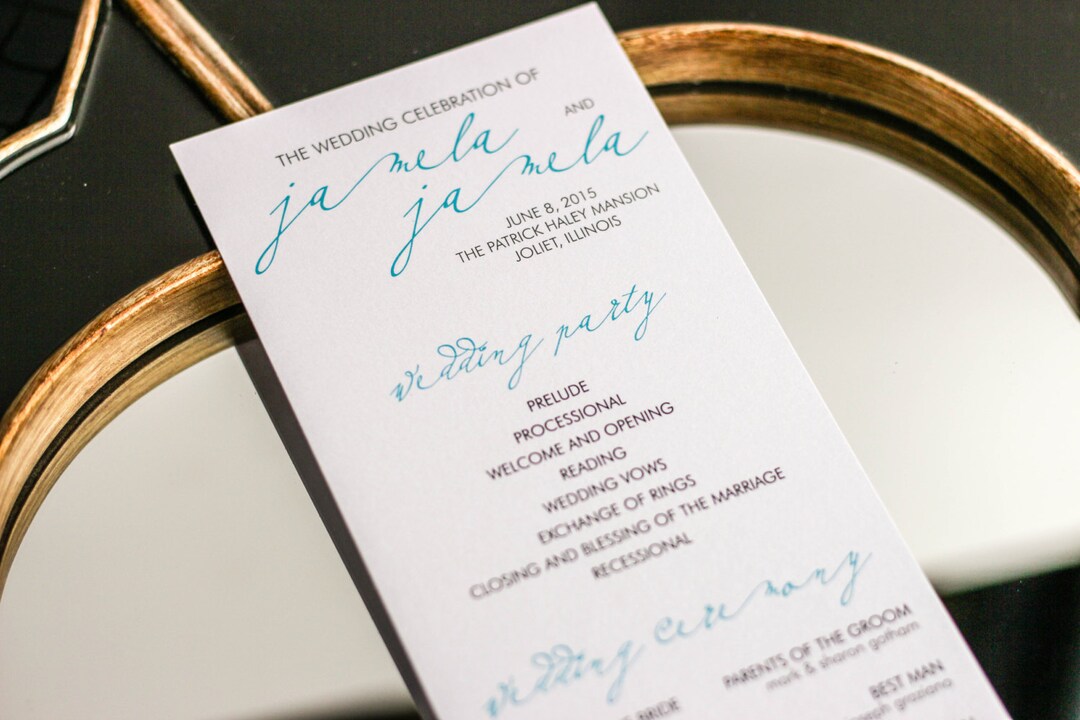 THE WEDDING CELEBRATION OF
jamela AND
jamela
JUNE 8, 2015
THE PATRICK HALEY MANSION
JOLIET, ILLINOIS
wedding party
PRELUDE
PROCESSIONAL
WELCOME AND OPENING
READING
WEDDING VOWS
EXCHANGE OF RINGS
CLOSING AND BLESSING OF THE MARRIAGE
RECESSIONAL
wedding ceremony
PARENTS OF THE GROOM
mark & sharon gotham
BRIDE
BEST MAN
graziano